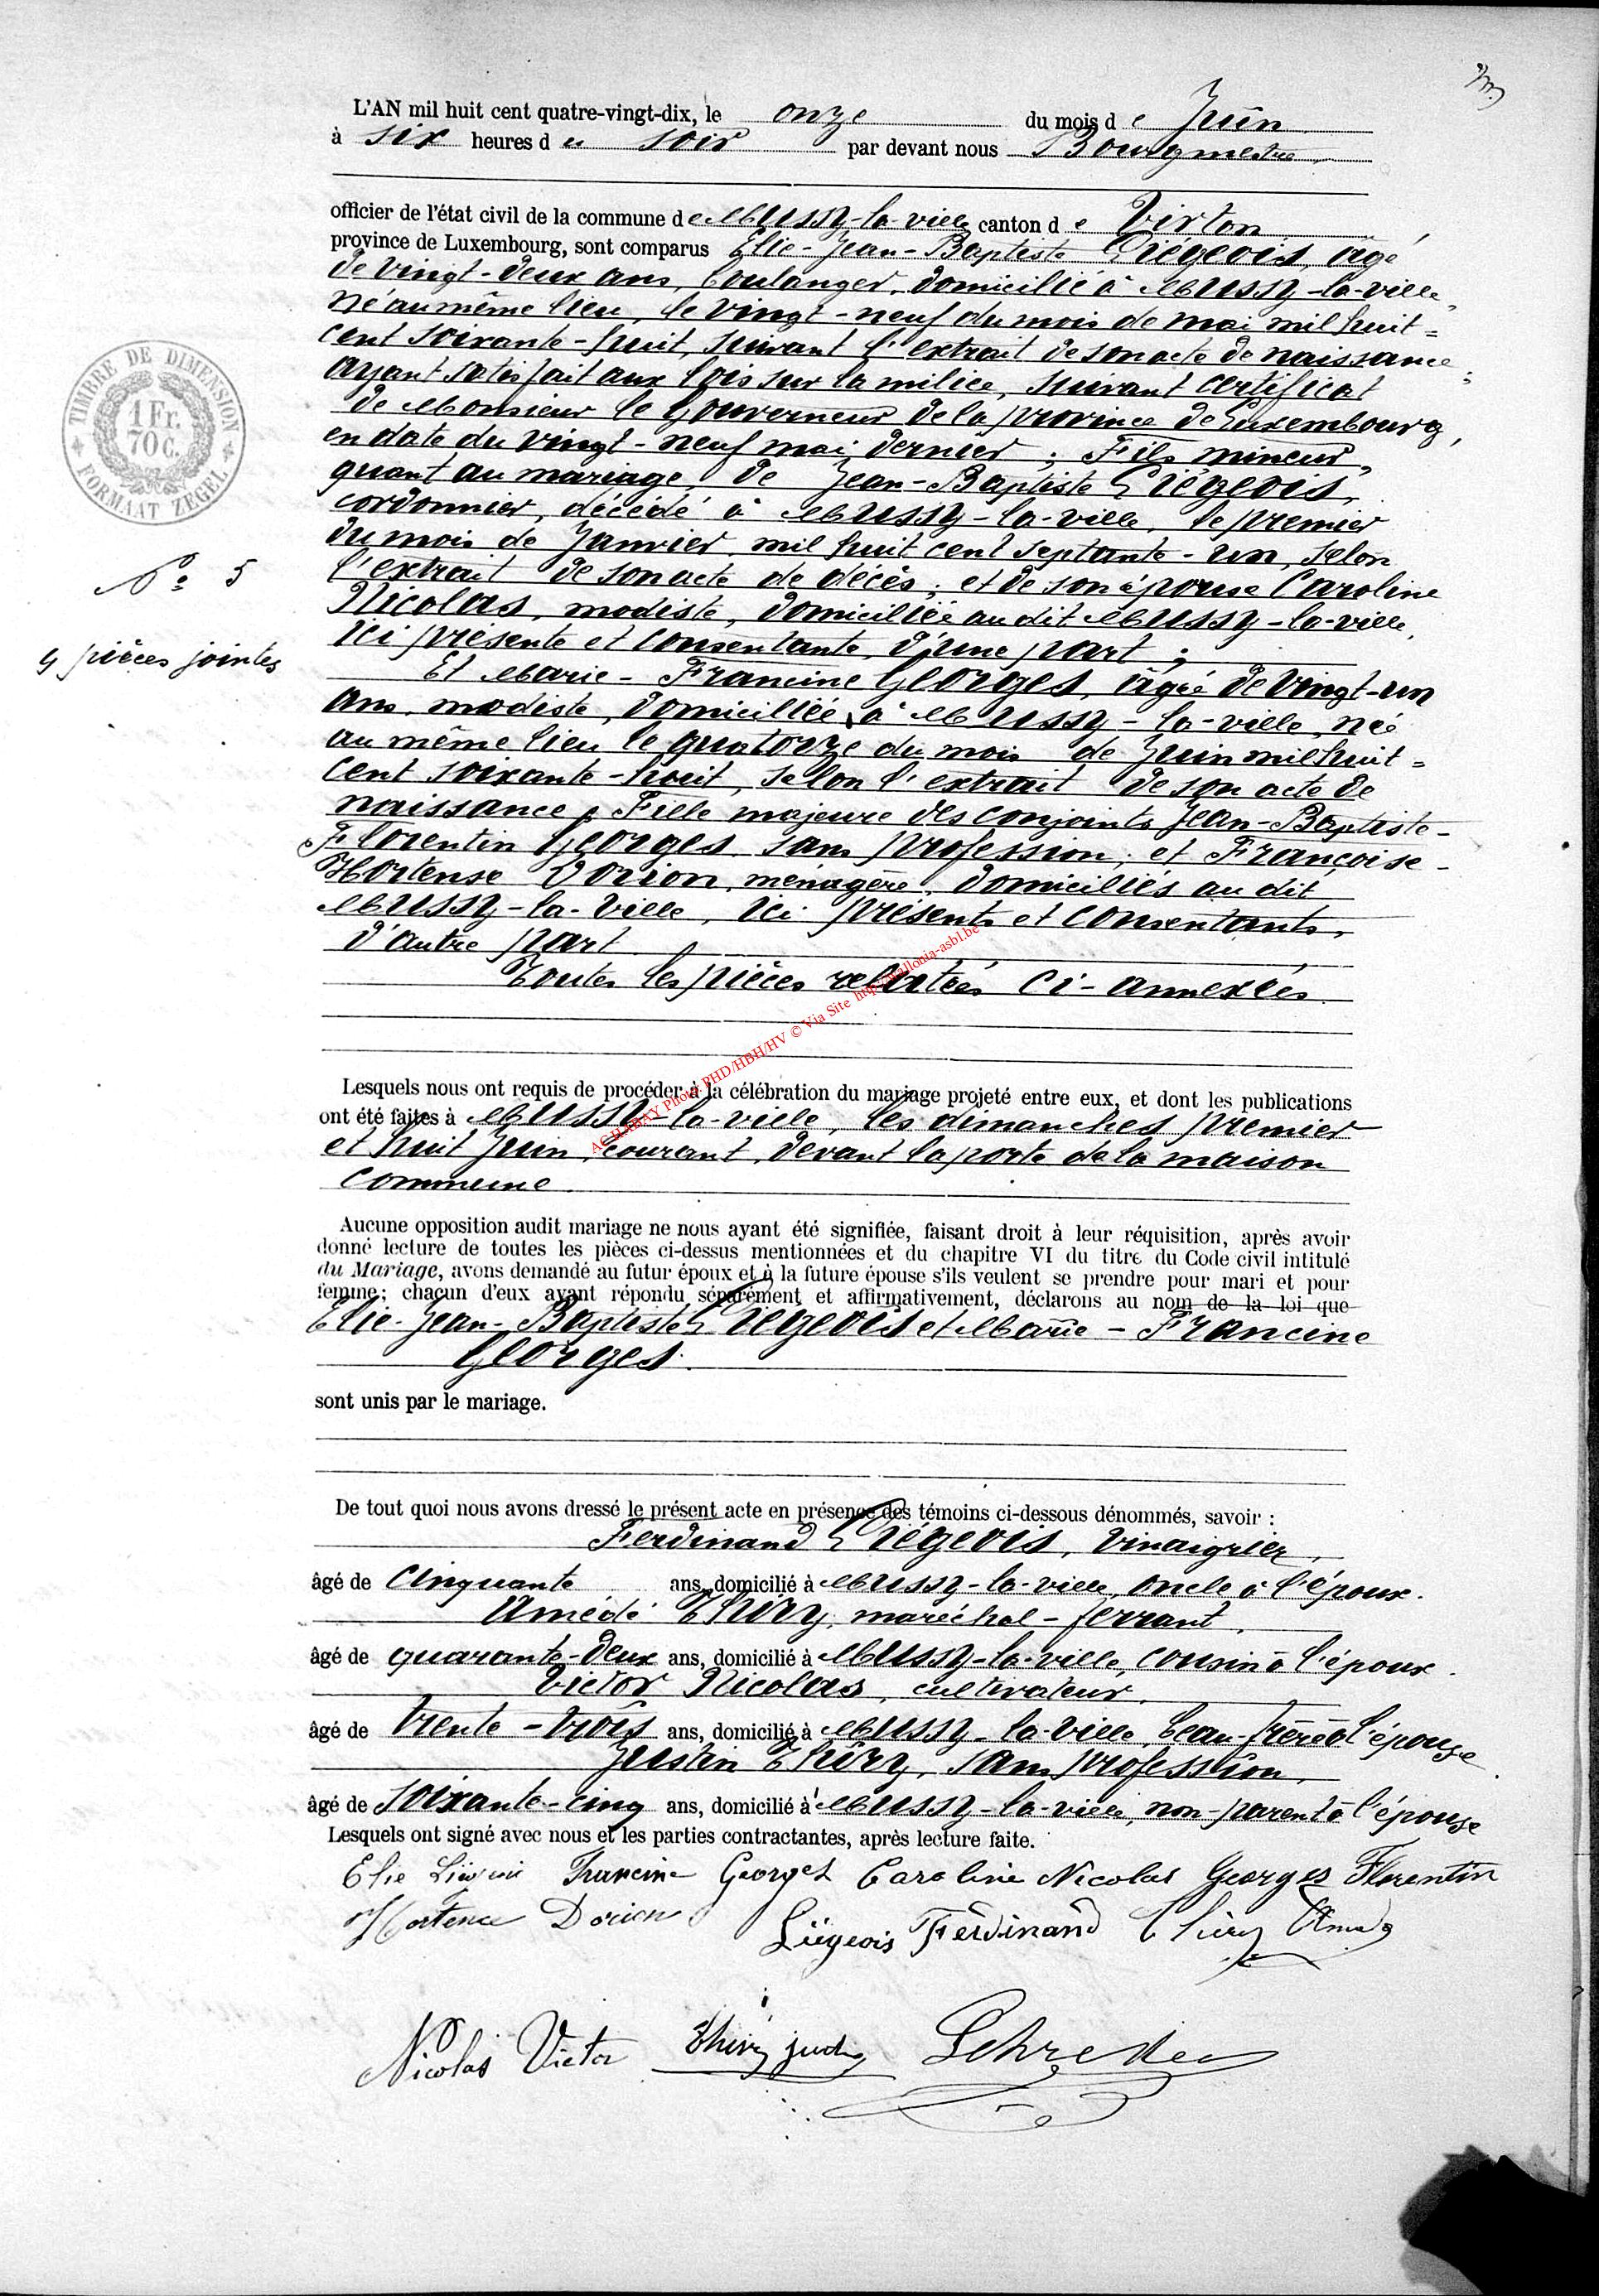 L'AN mil huit cent quatre-vingt-dix, le onze du mois de Juin
à six heures du soir par devant nous Bourgmestre
officier de l'état civil de la commune de Mussy-la-ville canton de Virton
province de Luxembourg, sont comparus Elie-Jean-Baptiste Liégeois, agé
de vingt-deux ans, boulanger, domicilié à Mussy-la-ville,
né au même lieu, le vingt-neuf du mois de mai mil huit=
cent soixante-huit, suivant l'extrait de son acte de naissance;
ayant satisfait aux lois sur la milice, suivant certificat
de Monsieur le Gouverneur de la province de Luxembourg,
en date du vingt-neuf mai dernier; Fils mineur,
quant au mariage, de Jean-Baptiste Liégeois,
cordonnier, décédé à Mussy-la-ville, le premier
du mois de Janvier mil huit cent septante-un, selon
l'extrait de son acte de décès; et de son épouse Caroline
Nicolas, modiste, domiciliée au dit Mussy-la-ville,
ici présente et consentante, d'une part;
Et Marie-Francine Georges, âgée de vingt-un
ans, modiste, domiciliée à Mussy-la-ville, née
au même lieu le quatorze du mois de Juin mil huit=
cent soixante-huit, selon l'extrait de son acte de
naissance; Fille majeure des conjoints Jean-Baptiste-
Florentin Georges, sans profession; et Françoise-
Hortense Dorion, ménagère, domiciliés au dit
Mussy-la-ville, ici présents et consentants,
d'autre part.
Toutes les pièces relatées ci-annexées.
TIMBRE DE DIMENSION
1 Fr.
70 C.
FORMAAT ZEGEL
N° 5
4 pièces jointes
AC HABAY Photo PHD/HBH/HV © Via Site http://wallonia-asbl.be
Lesquels nous ont requis de procéder à la célébration du mariage projeté entre eux, et dont les publications
ont été faites à Mussy-la-ville, les dimanches premier
et huit Juin courant, devant la porte de la maison
commune.
Aucune opposition audit mariage ne nous ayant été signifiée, faisant droit à leur réquisition, après avoir
donné lecture de toutes les pièces ci-dessus mentionnées et du chapitre VI du titre du Code civil intitulé
du Mariage, avons demandé au futur époux et à la future épouse s'ils veulent se prendre pour mari et pour
femme; chacun d'eux ayant répondu séparément et affirmativement, déclarons au nom de la loi que
Elie-Jean-Baptiste Liégeois et Marie-Francine
Georges.
sont unis par le mariage.
De tout quoi nous avons dressé le présent acte en présence des témoins ci-dessous dénommés, savoir :
Ferdinand Liégeois, vinaigrier,
âgé de cinquante ans, domicilié à Mussy-la-ville, oncle à l'époux.
Amédé Thiry, maréchal-ferrant,
âgé de quarante-deux ans, domicilié à Mussy-la-ville, cousin à l'époux.
Victor Nicolas, cultivateur,
âgé de trente-trois ans, domicilié à Mussy-la-ville, beau-frère à l'épouse
Justin Thiry, sans profession,
âgé de soixante-cinq ans, domicilié à Mussy-la-ville, non-parent à l'épouse
Lesquels ont signé avec nous et les parties contractantes, après lecture faite.
Elie Liégeois Francine Georges Caroline Nicolas Georges Florentin
Hortence Dorion Liégeois Ferdinand Thiry
Nicolas Victor Thiry